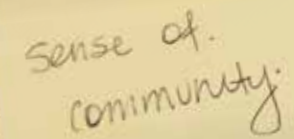 sense of.
community.